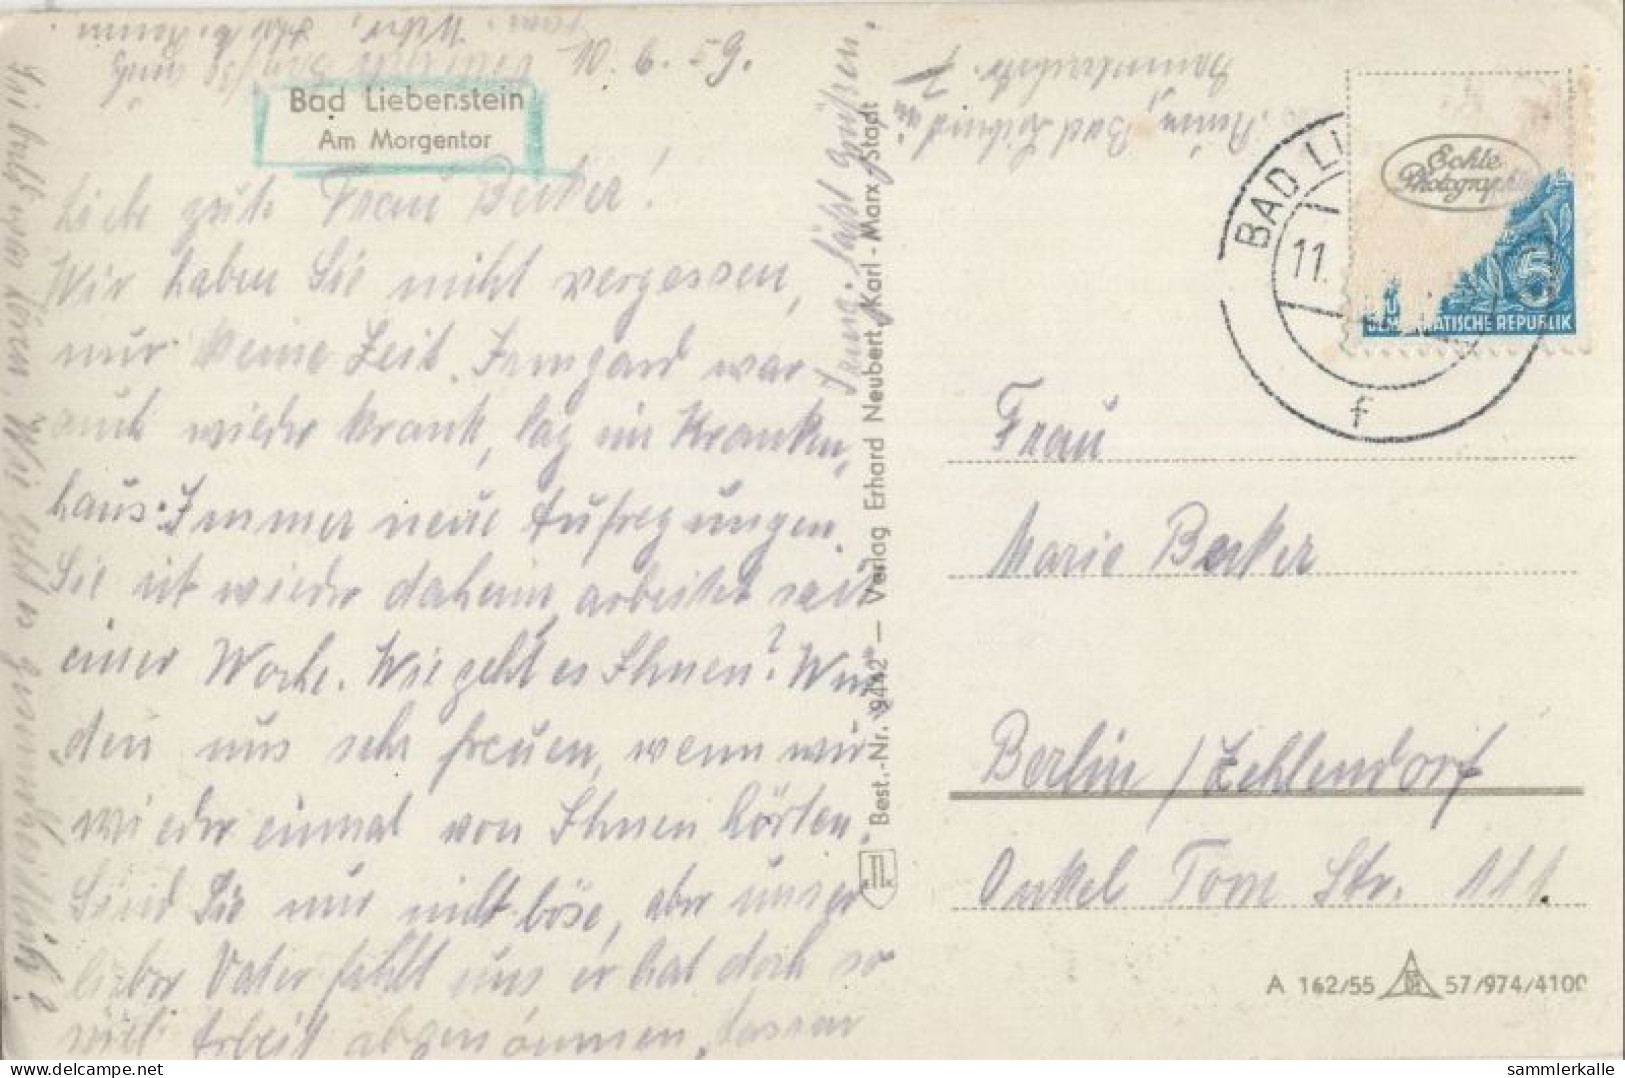 10. 6. 59.
Bad Liebenstein
Am Morgentor
Liebe gute Frau Becker!
Wir haben Sie nicht vergessen,
nur keine Zeit. Irmgard war
auch wieder krank, lag im Kranken,
haus. Immer neue Aufregungen.
Sie ist wieder daheim, arbeitet seit
einer Woche. Wie geht es Ihnen? Wür
den uns sehr freuen, wenn wir
wieder einmal von Ihnen hörten.
Sind Sie nur nicht böse, aber unser
lieber Vater fehlt uns er hat doch so
viel Arbeit abgenommen, lassen
Wie geht es gesundheitlich?
Irmg. lässt grüßen.
Best.-Nr. 9442 — Verlag Erhard Neubert, Karl-Marx-Stadt
Bad
BAD LI
11.
f
Echte
Photographie
5
DEMOKRATISCHE REPUBLIK
Frau
Marie Becker
Berlin / Zehlendorf
Onkel Tom Str. 111.
A 162/55 57/974/4100
sammlerkalle